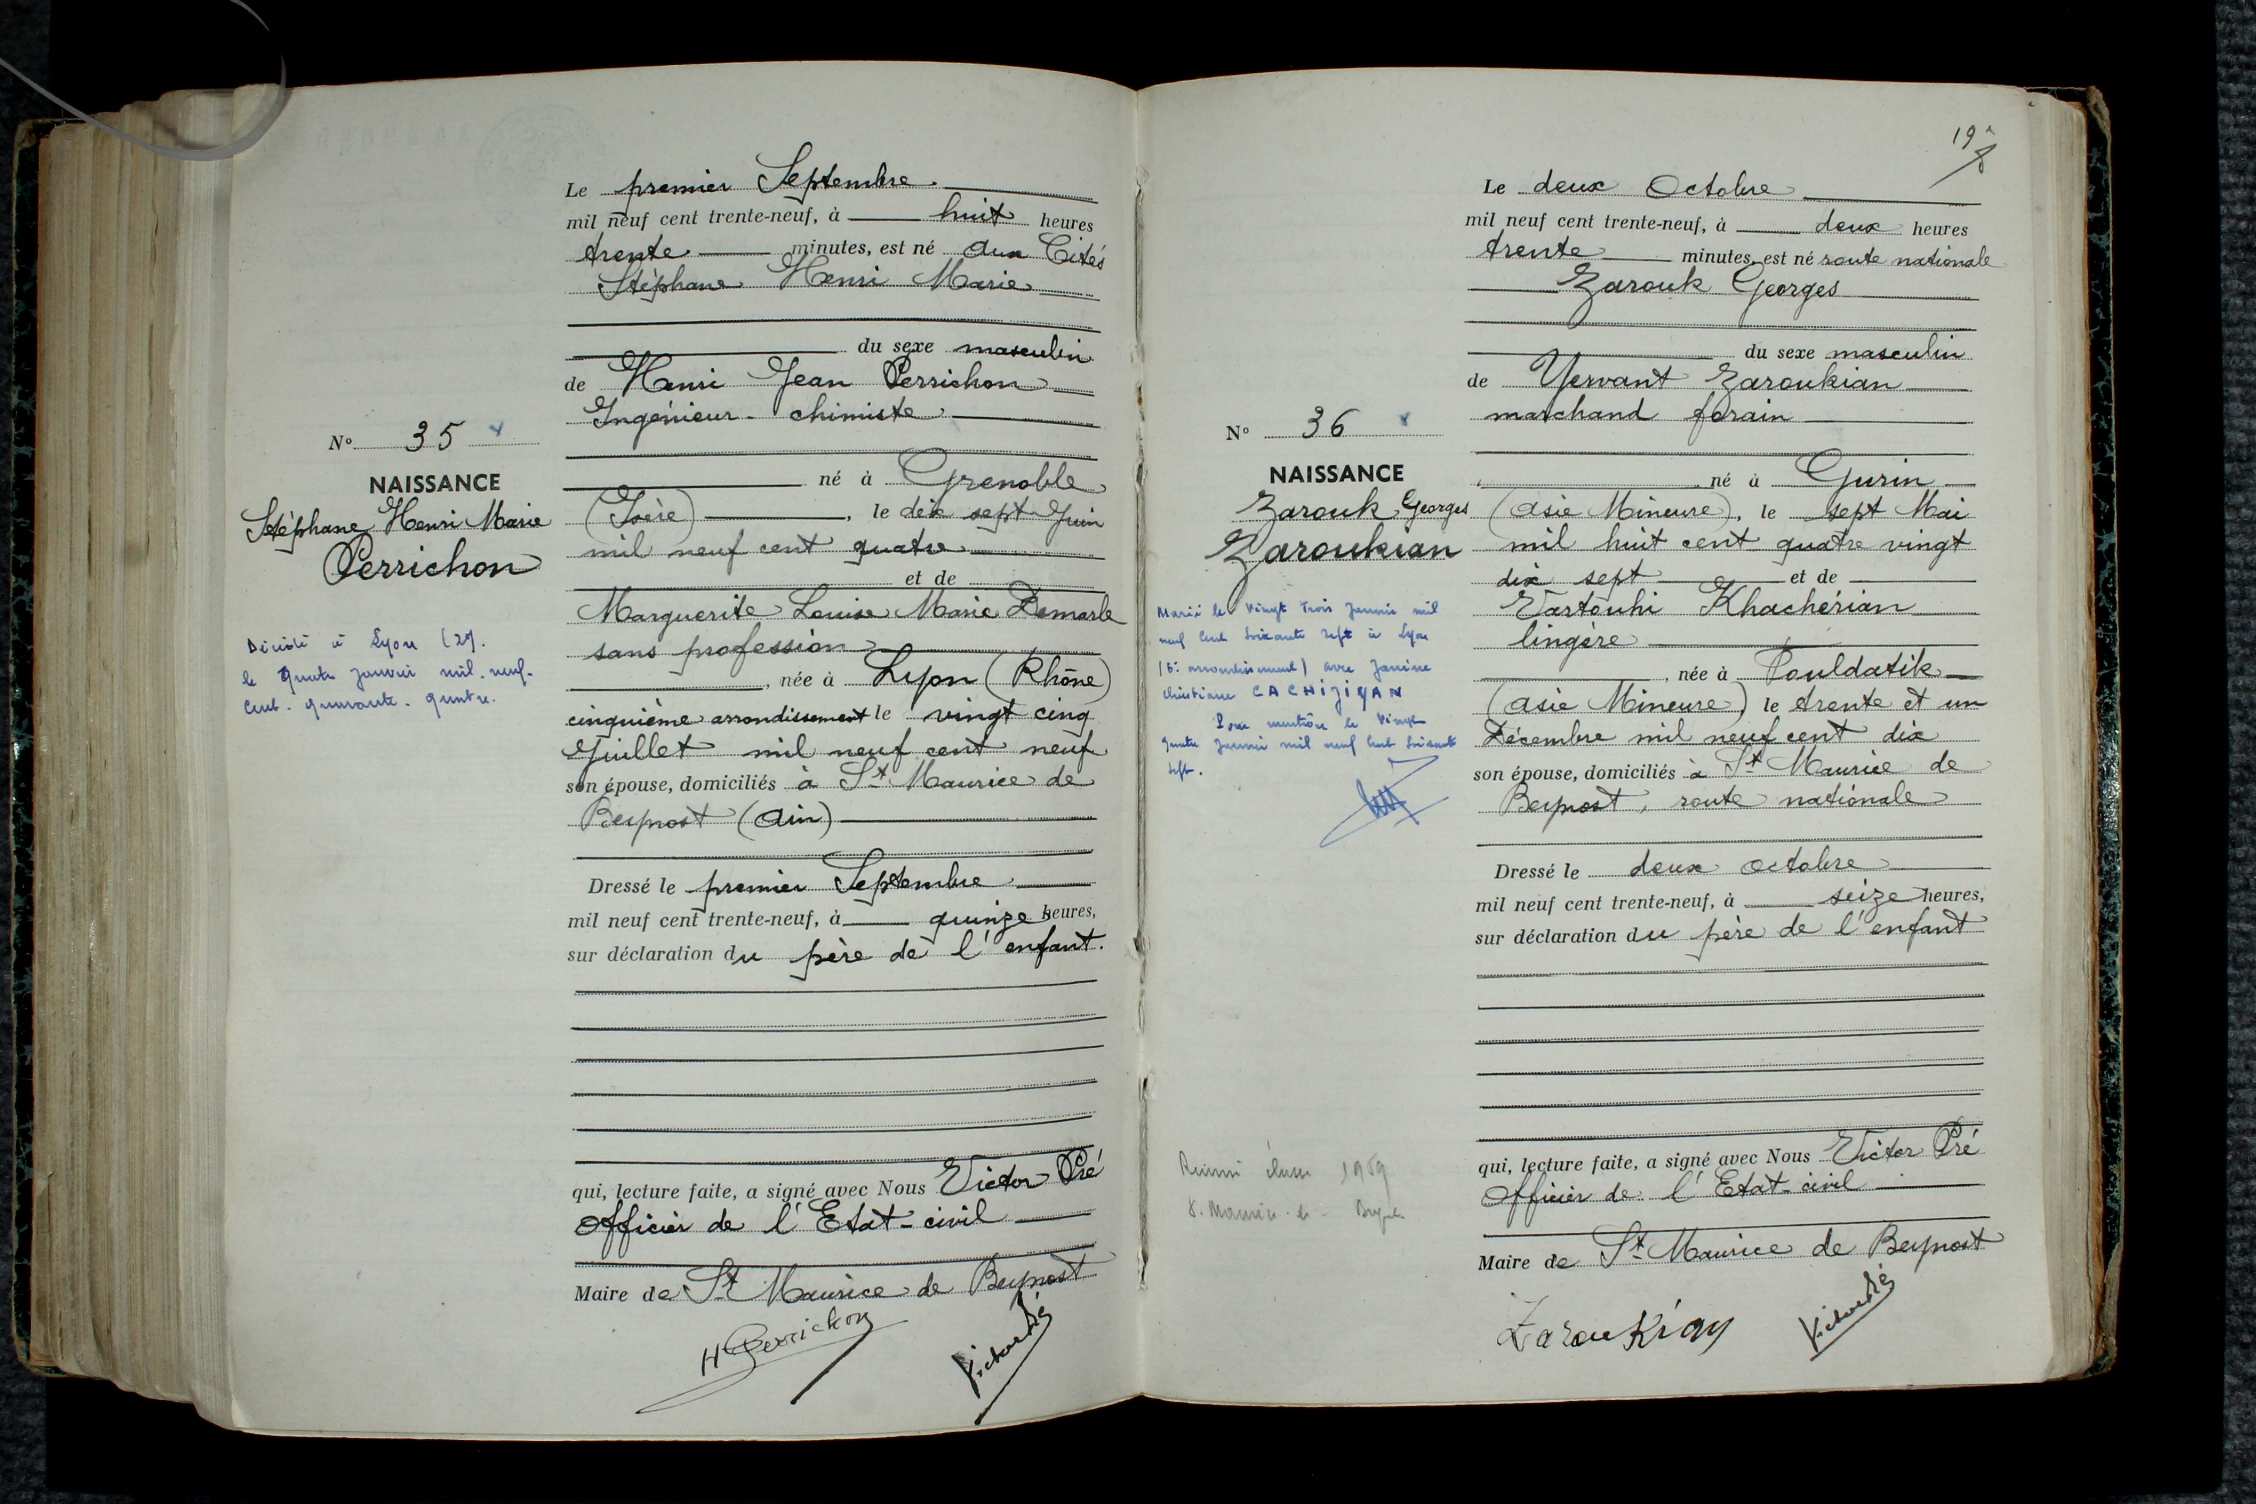 Le premier Septembre
mil neuf cent trente-neuf, à huit heures
trente minutes, est né aux Cités
Stéphane Henri Marie
du sexe masculin
de Henri Jean Perrichon
Ingénieur-chimiste
N° 35
NAISSANCE
Stéphane Henri Marie
Perrichon
né à Grenoble
(Isère), le dix sept Juin
mil neuf cent quatre
et de
Marguerite Louise Marie Demarle
sans profession
, née à Lyon (Rhône)
cinquième arrondissement le vingt cinq
Juillet mil neuf cent neuf
son épouse, domiciliés à St Maurice de
Beynost (Ain)
Décédé à Lyon (2e).
le quatre janvier mil-neuf-
cent-quarante-quatre.
Dressé le premier Septembre
mil neuf cent trente-neuf, à quinze heures,
sur déclaration du père de l'enfant.
qui, lecture faite, a signé avec Nous Victor Pré
Officier de l'Etat-civil
Maire de St Maurice de Beynost
H Perrichon
Victor Pré
19
Le deux Octobre
mil neuf cent trente-neuf, à deux heures
trente minutes, est né route nationale
Zarouk Georges
du sexe masculin
de Yervant Zaroukian
marchand forain
N° 36
NAISSANCE
Zarouk Georges
Zaroukian
né à Gurin
(Asie Mineure), le sept Mai
mil huit cent quatre vingt
dix sept et de
Vartouhi Khachérian
lingère
, née à Pouldatik
(Asie Mineure) le trente et un
Décembre mil neuf cent dix
son épouse, domiciliés à St Maurice de
Beynost, route nationale
Marié le vingt trois janvier mil
neuf cent soixante sept à Lyon
(6e arrondissement) avec Janine
Christiane CACHIJIYAN
Pour mention le vingt
quatre janvier mil neuf cent soixante
sept.
Dressé le deux octobre
mil neuf cent trente-neuf, à seize heures,
sur déclaration du père de l'enfant
qui, lecture faite, a signé avec Nous Victor Pré
Officier de l'Etat-civil
Maire de St Maurice de Beynost
classe 1959
St. Maurice-de-
Zaroukian
Victor Pré